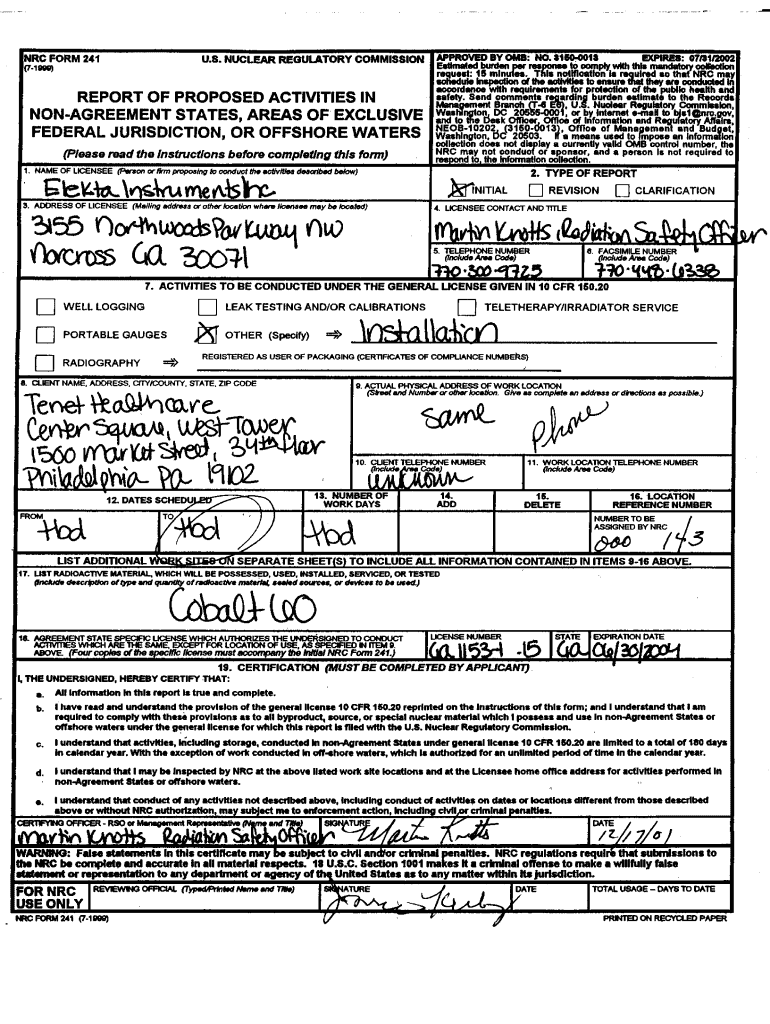 NRC FORM 241
(7-1999)
U.S. NUCLEAR REGULATORY COMMISSION
REPORT OF PROPOSED ACTIVITIES IN
NON-AGREEMENT STATES, AREAS OF EXCLUSIVE
FEDERAL JURISDICTION, OR OFFSHORE WATERS
(Please read the instructions before completing this form)
APPROVED BY OMB: NO. 3150-0013 EXPIRES: 07/31/2002
Estimated burden per response to comply with this mandatory collection
request: 15 minutes. This notification is required so that NRC may
schedule inspection of the activities to ensure that they are conducted in
accordance with requirements for protection of the public health and
safety. Send comments regarding burden estimate to the Records
Management Branch (T-6 E6), U.S. Nuclear Regulatory Commission,
Washington, DC 20555-0001, or by internet e-mail to bjs1@nrc.gov,
and to the Desk Officer, Office of Information and Regulatory Affairs,
NEOB-10202, (3150-0013), Office of Management and Budget,
Washington, DC 20503. If a means used to impose an information
collection does not display a currently valid OMB control number, the
NRC may not conduct or sponsor, and a person is not required to
respond to, the information collection.
1. NAME OF LICENSEE (Person or firm proposing to conduct the activities described below)
Elekta Instruments Inc
2. TYPE OF REPORT
INITIAL REVISION CLARIFICATION
3. ADDRESS OF LICENSEE (Mailing address or other location where licensee may be located)
3155 Northwoods Parkway NW
Norcross GA 30071
4. LICENSEE CONTACT AND TITLE
Martin Knotts, Radiation Safety Officer
5. TELEPHONE NUMBER
(Include Area Code)
770-300-9725
6. FACSIMILE NUMBER
(Include Area Code)
770-448-6338
7. ACTIVITIES TO BE CONDUCTED UNDER THE GENERAL LICENSE GIVEN IN 10 CFR 150.20
WELL LOGGING LEAK TESTING AND/OR CALIBRATIONS TELETHERAPY/IRRADIATOR SERVICE
PORTABLE GAUGES OTHER (Specify) ⇒ Installation
RADIOGRAPHY ⇒ REGISTERED AS USER OF PACKAGING (CERTIFICATES OF COMPLIANCE NUMBERS)
8. CLIENT NAME, ADDRESS, CITY/COUNTY, STATE, ZIP CODE
Tenet Healthcare
Center Square, West Tower
1500 Market Street, 34th Floor
Philadelphia PA 19102
9. ACTUAL PHYSICAL ADDRESS OF WORK LOCATION
(Street and Number or other location. Give as complete an address or directions as possible.)
same
phone
10. CLIENT TELEPHONE NUMBER
(Include Area Code)
unknown
11. WORK LOCATION TELEPHONE NUMBER
(Include Area Code)
12. DATES SCHEDULED
FROM
TO
13. NUMBER OF
WORK DAYS
14.
ADD
15.
DELETE
16. LOCATION
REFERENCE NUMBER
NUMBER TO BE
ASSIGNED BY NRC
000 143
LIST ADDITIONAL WORK SITES ON SEPARATE SHEET(S) TO INCLUDE ALL INFORMATION CONTAINED IN ITEMS 9-16 ABOVE.
17. LIST RADIOACTIVE MATERIAL, WHICH WILL BE POSSESSED, USED, INSTALLED, SERVICED, OR TESTED
(Include description of type and quantity of radioactive material, sealed sources, or devices to be used.)
Cobalt 60
18. AGREEMENT STATE SPECIFIC LICENSE WHICH AUTHORIZES THE UNDERSIGNED TO CONDUCT
ACTIVITIES WHICH ARE THE SAME, EXCEPT FOR LOCATION OF USE, AS SPECIFIED IN ITEM 9
ABOVE. (Four copies of the specific license must accompany the initial NRC Form 241.)
LICENSE NUMBER
GA 1153-1 -15
STATE
GA
EXPIRATION DATE
06/30/2004
19. CERTIFICATION (MUST BE COMPLETED BY APPLICANT)
I, THE UNDERSIGNED, HEREBY CERTIFY THAT:
a. All information in this report is true and complete.
b. I have read and understand the provision of the general license 10 CFR 150.20 reprinted on the instructions of this form; and I understand that I am
required to comply with these provisions as to all byproduct, source, or special nuclear material which I possess and use in non-Agreement States or
offshore waters under the general license for which this report is filed with the U.S. Nuclear Regulatory Commission.
c. I understand that activities, including storage, conducted in non-Agreement States under general license 10 CFR 150.20 are limited to a total of 180 days
in calendar year. With the exception of work conducted in off-shore waters, which is authorized for an unlimited period of time in the calendar year.
d. I understand that I may be inspected by NRC at the above listed work site locations and at the Licensee home office address for activities performed in
non-Agreement States or offshore waters.
e. I understand that conduct of any activities not described above, including conduct of activities on dates or locations different from those described
above or without NRC authorization, may subject me to enforcement action, including civil or criminal penalties.
CERTIFYING OFFICER - RSO or Management Representative (Name and Title)
Martin Knotts Radiation Safety Officer
SIGNATURE
Martin Knotts
DATE
12/17/01
WARNING: False statements in this certificate may be subject to civil and/or criminal penalties. NRC regulations require that submissions to
the NRC be complete and accurate in all material respects. 18 U.S.C. Section 1001 makes it a criminal offense to make a willfully false
statement or representation to any department or agency of the United States as to any matter within its jurisdiction.
FOR NRC
USE ONLY
REVIEWING OFFICIAL (Typed/Printed Name and Title)
SIGNATURE
DATE
TOTAL USAGE – DAYS TO DATE
NRC FORM 241 (7-1999)
PRINTED ON RECYCLED PAPER